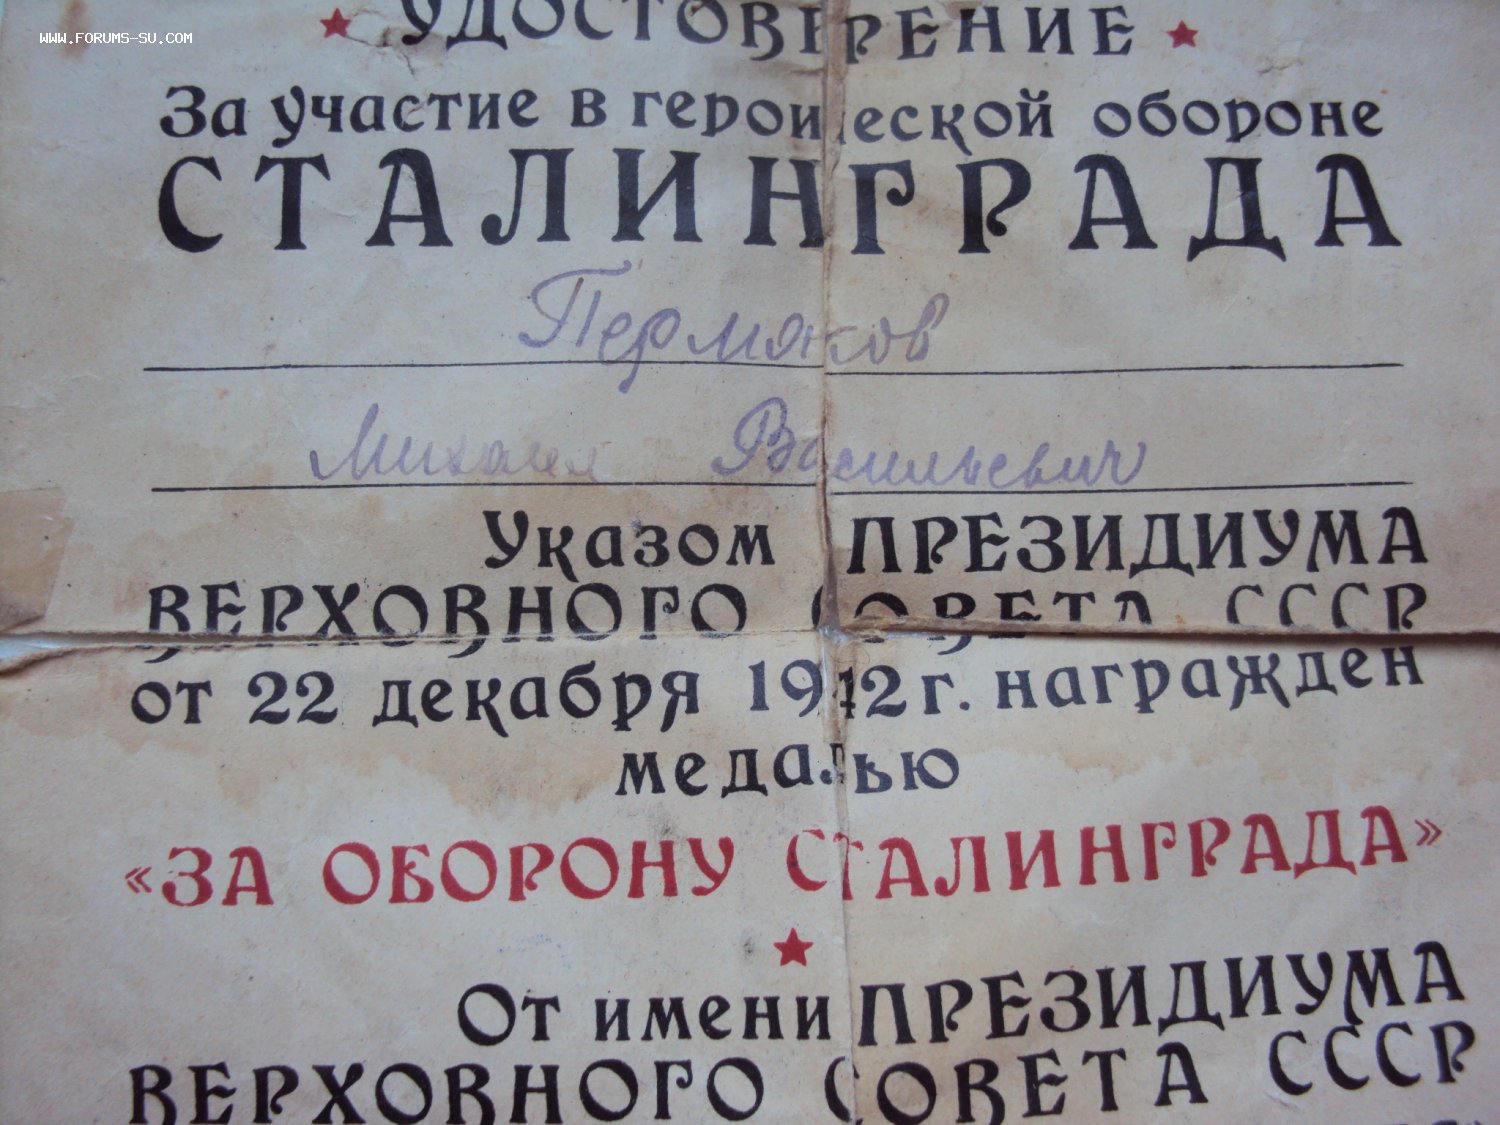 WWW.FORUMS-SU.COM
★ УДОСТОВЕРЕНИЕ ★
За участие в героической обороне
СТАЛИНГРАДА
Пермяков
Михаил Васильевич
Указом ПРЕЗИДИУМА
ВЕРХОВНОГО СОВЕТА СССР
от 22 декабря 1942 г. награжден
медалью
«ЗА ОБОРОНУ СТАЛИНГРАДА»
★
От имени ПРЕЗИДИУМА
ВЕРХОВНОГО СОВЕТА СССР